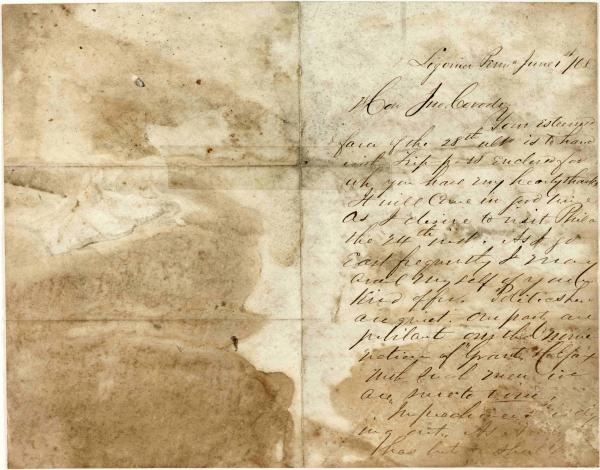 Ligonier Penna June 1st /68
Hon Jno. Covode
Your esteemed
favor of the 28th ult is to hand
with Trip pass enclosed for
wh. you have my hearty thanks
It will come in good time
as I desire to visit Phila
the 24th inst. As I go
East frequently I may
avail myself of your
kind offer. Politics here
are quiet. Our party are
jubilant over the nomi
nation of Grant &
With such men we
are sure to win,
Impeachment
ing out. As
has but a